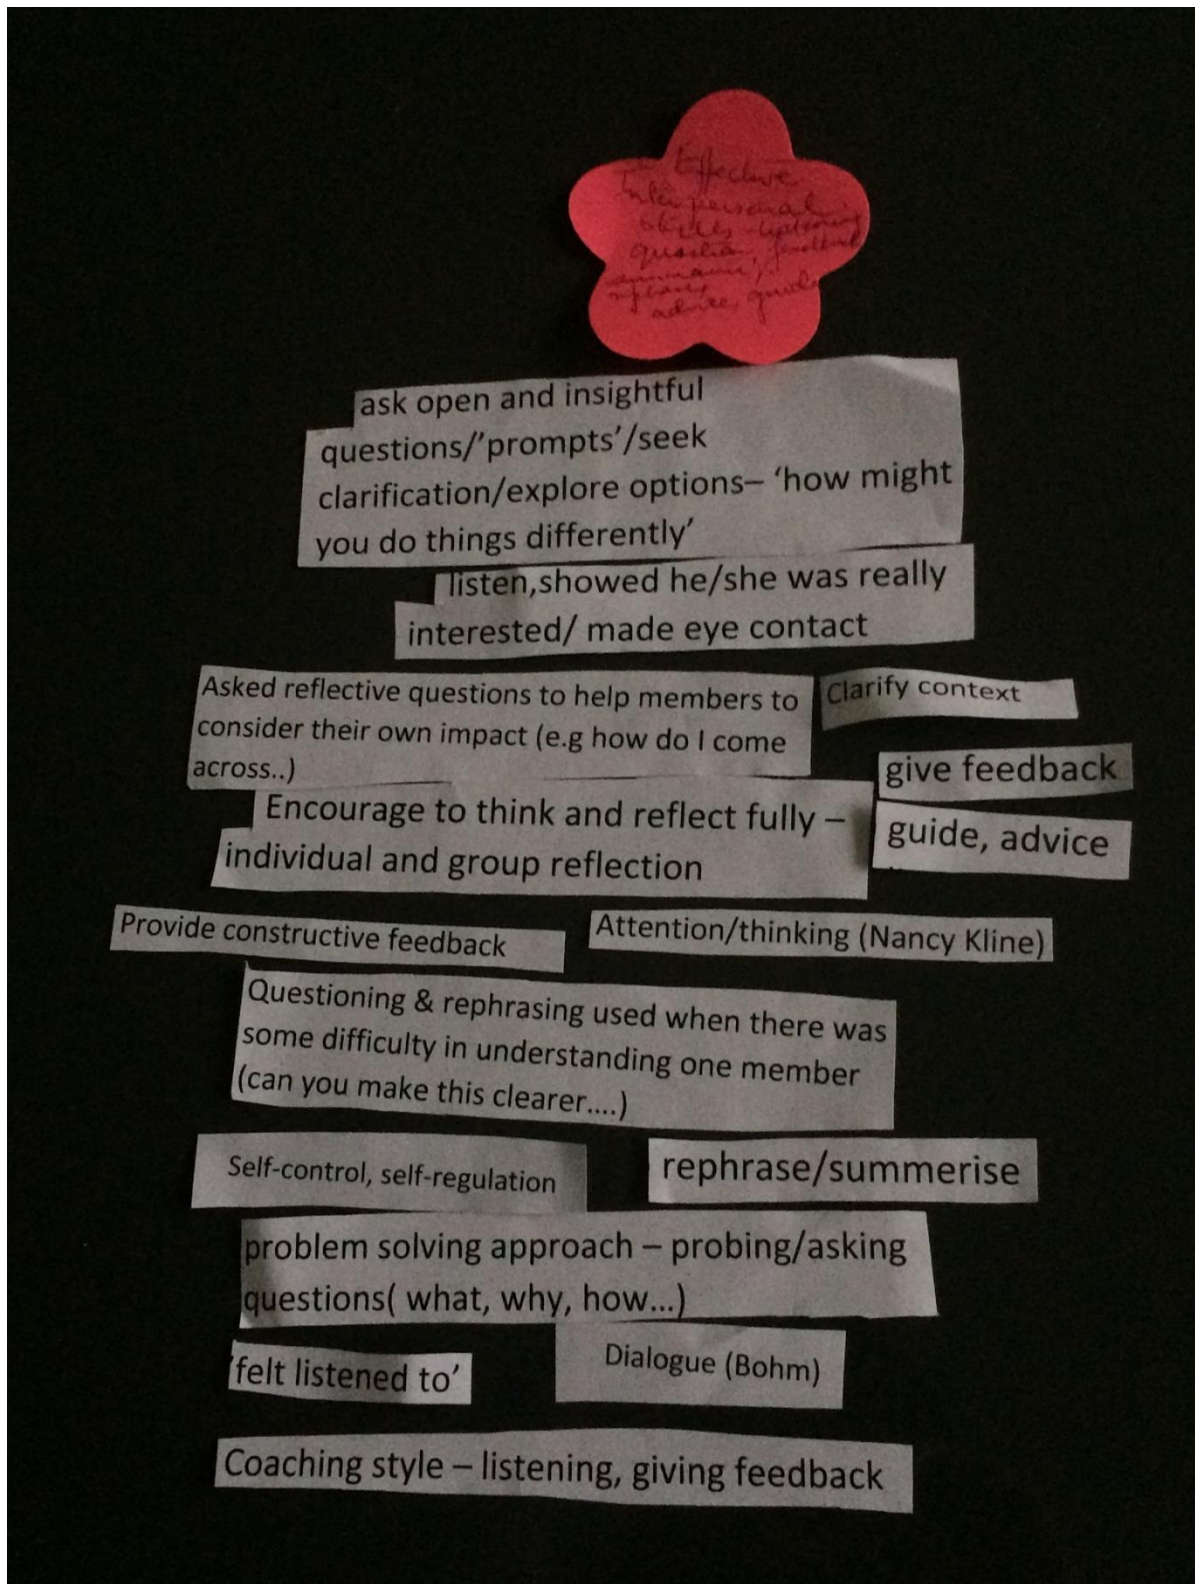 Effective
Interpersonal
skills - listening
question, feedback
summarise,
rephrase,
advice, guide
ask open and insightful
questions/'prompts'/seek
clarification/explore options– 'how might
you do things differently'
listen,showed he/she was really
interested/ made eye contact
Asked reflective questions to help members to
consider their own impact (e.g how do I come
across..)
Clarify context
give feedback
Encourage to think and reflect fully –
individual and group reflection
guide, advice
Provide constructive feedback
Attention/thinking (Nancy Kline)
Questioning & rephrasing used when there was
some difficulty in understanding one member
(can you make this clearer....)
Self-control, self-regulation
rephrase/summerise
problem solving approach – probing/asking
questions( what, why, how...)
'felt listened to'
Dialogue (Bohm)
Coaching style – listening, giving feedback